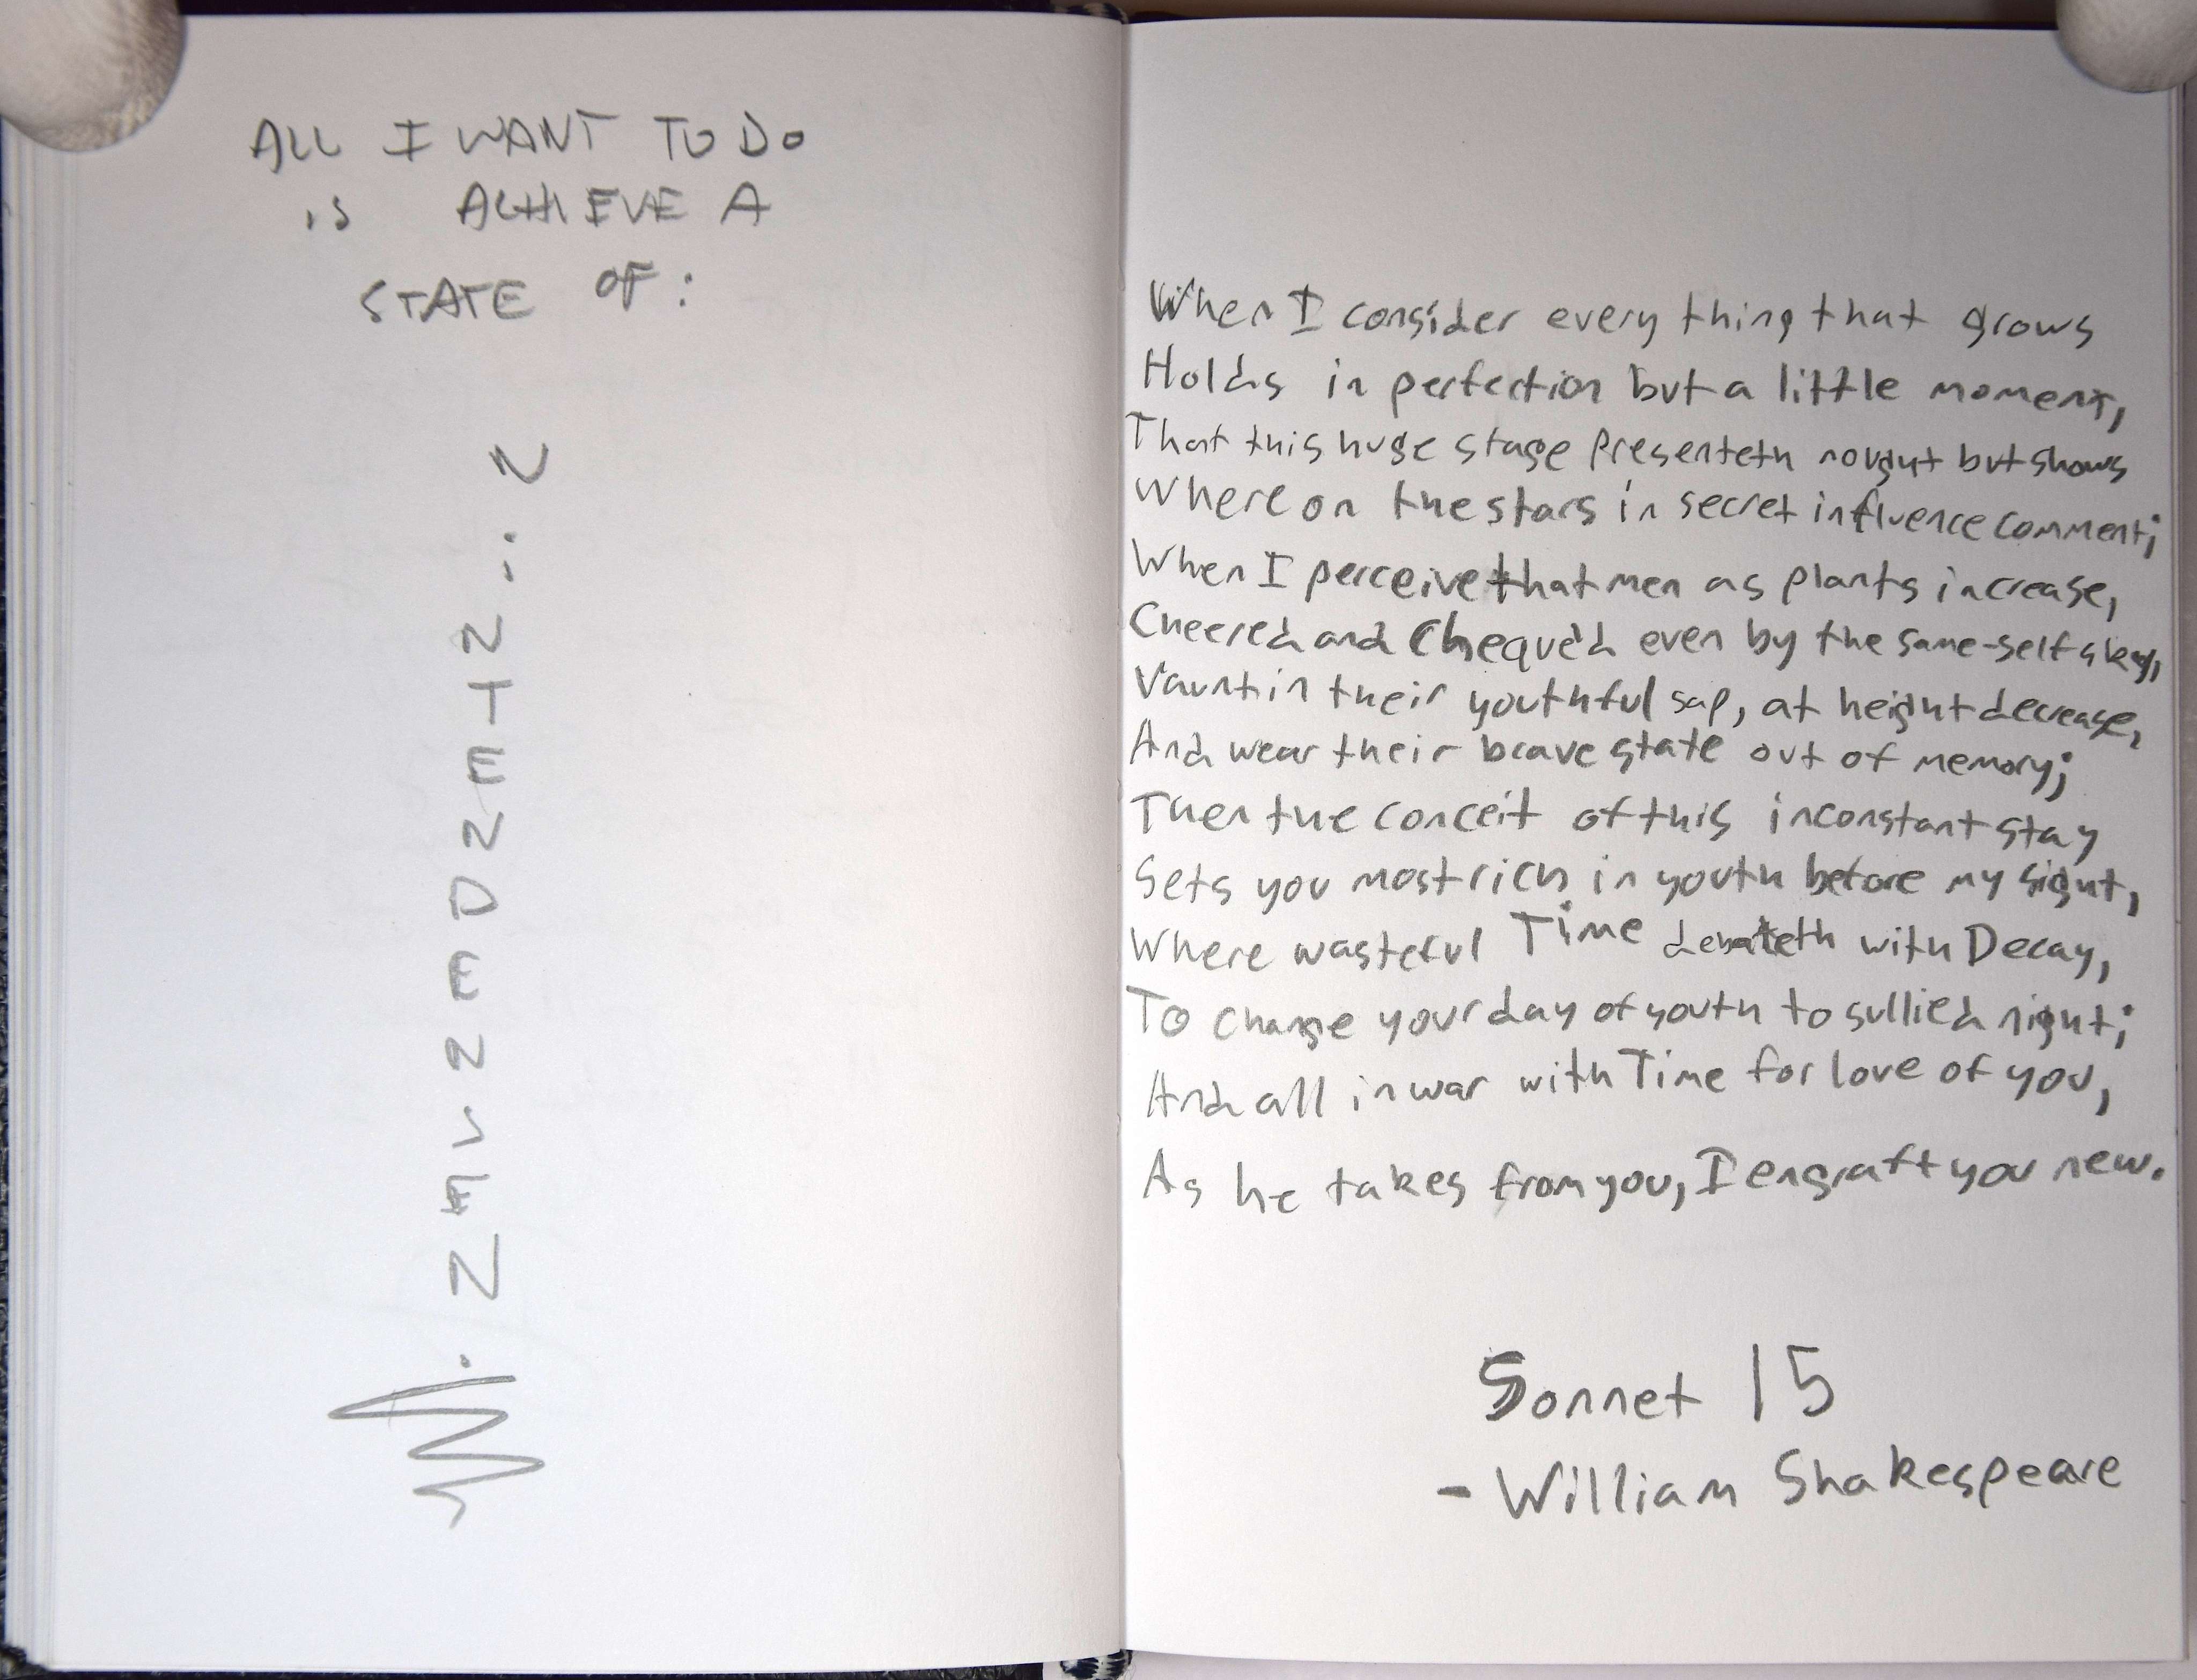 ALL I WANT TO DO
IS ACHIEVE A
STATE OF:
When I consider every thing that grows
Holds in perfection but a little moment,
That this huge stage presenteth nought but shows
Where on the stars in secret influence comment;
When I perceive that men as plants increase,
Cheered and Chequ'd even by the same-self sky,
Vaunt in their youthful sap, at height decrease,
And wear their brave state out of memory;
Then the conceit of this inconstant stay
Sets you most rich in youth before my sight,
Where wasteful Time debateth with Decay,
To change your day of youth to sullied night;
And all in war with Time for love of you,
As he takes from you, I engraft you new.
Sonnet 15
- William Shakespeare